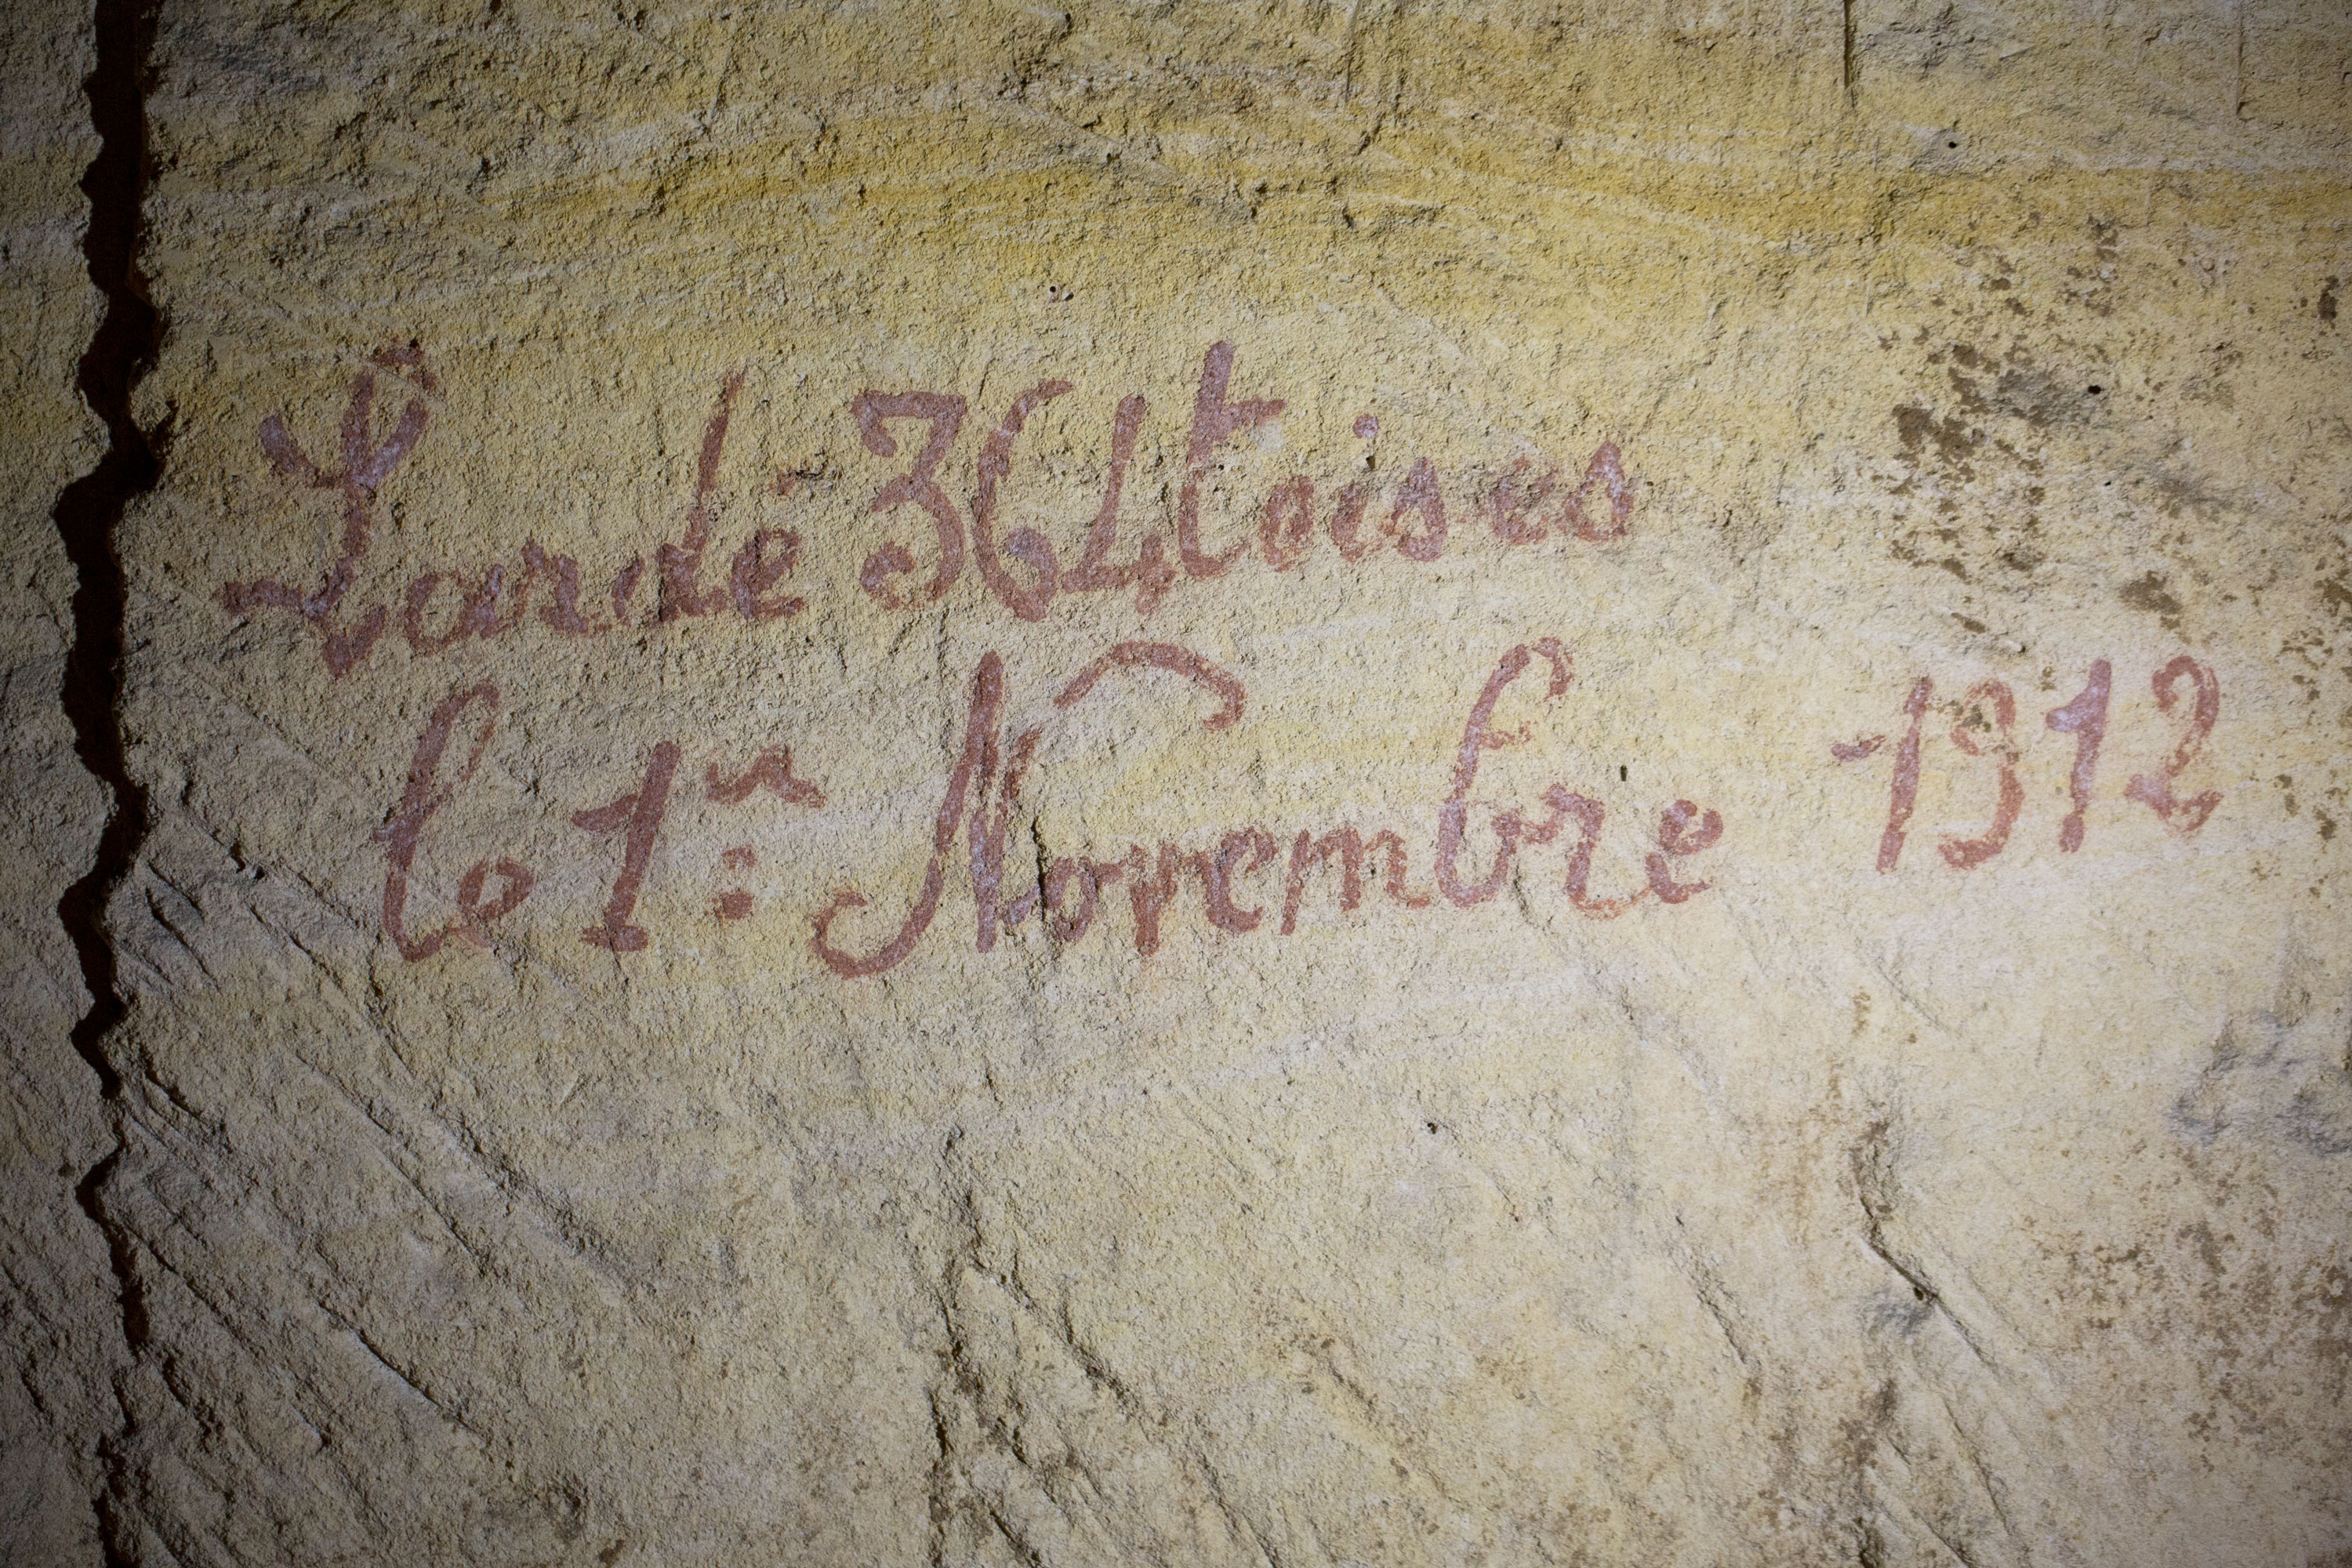 Lardé 364 toises
le 1er : Novembre 1912